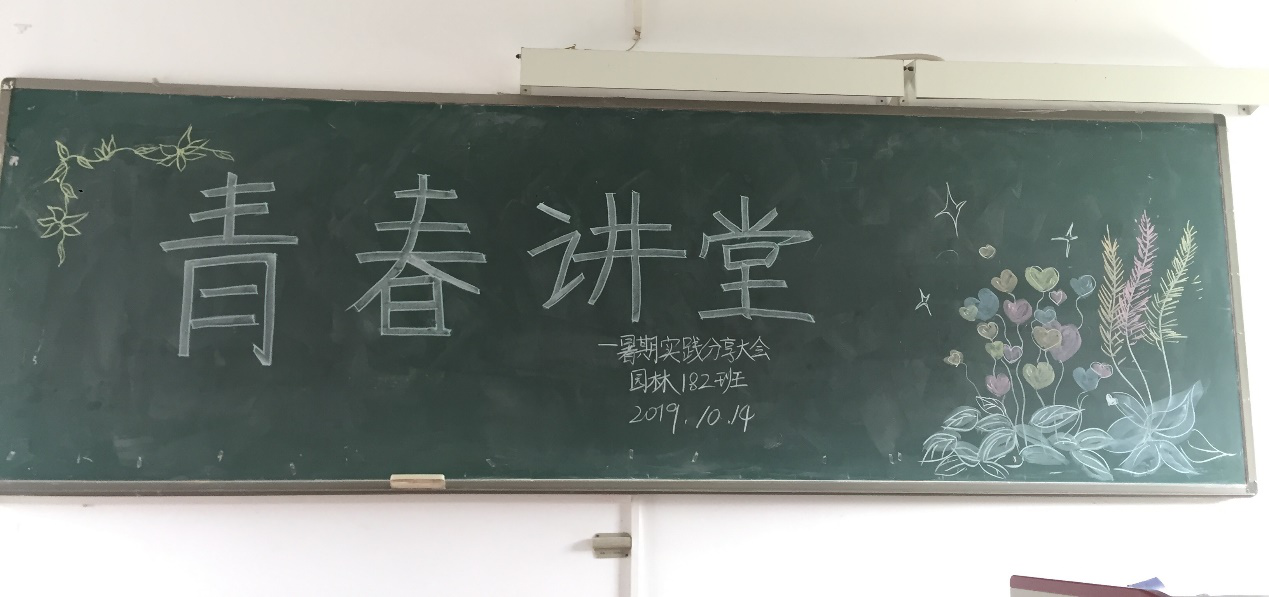 青春讲堂
一暑期实践分享大会
园林182班
2019.10.14